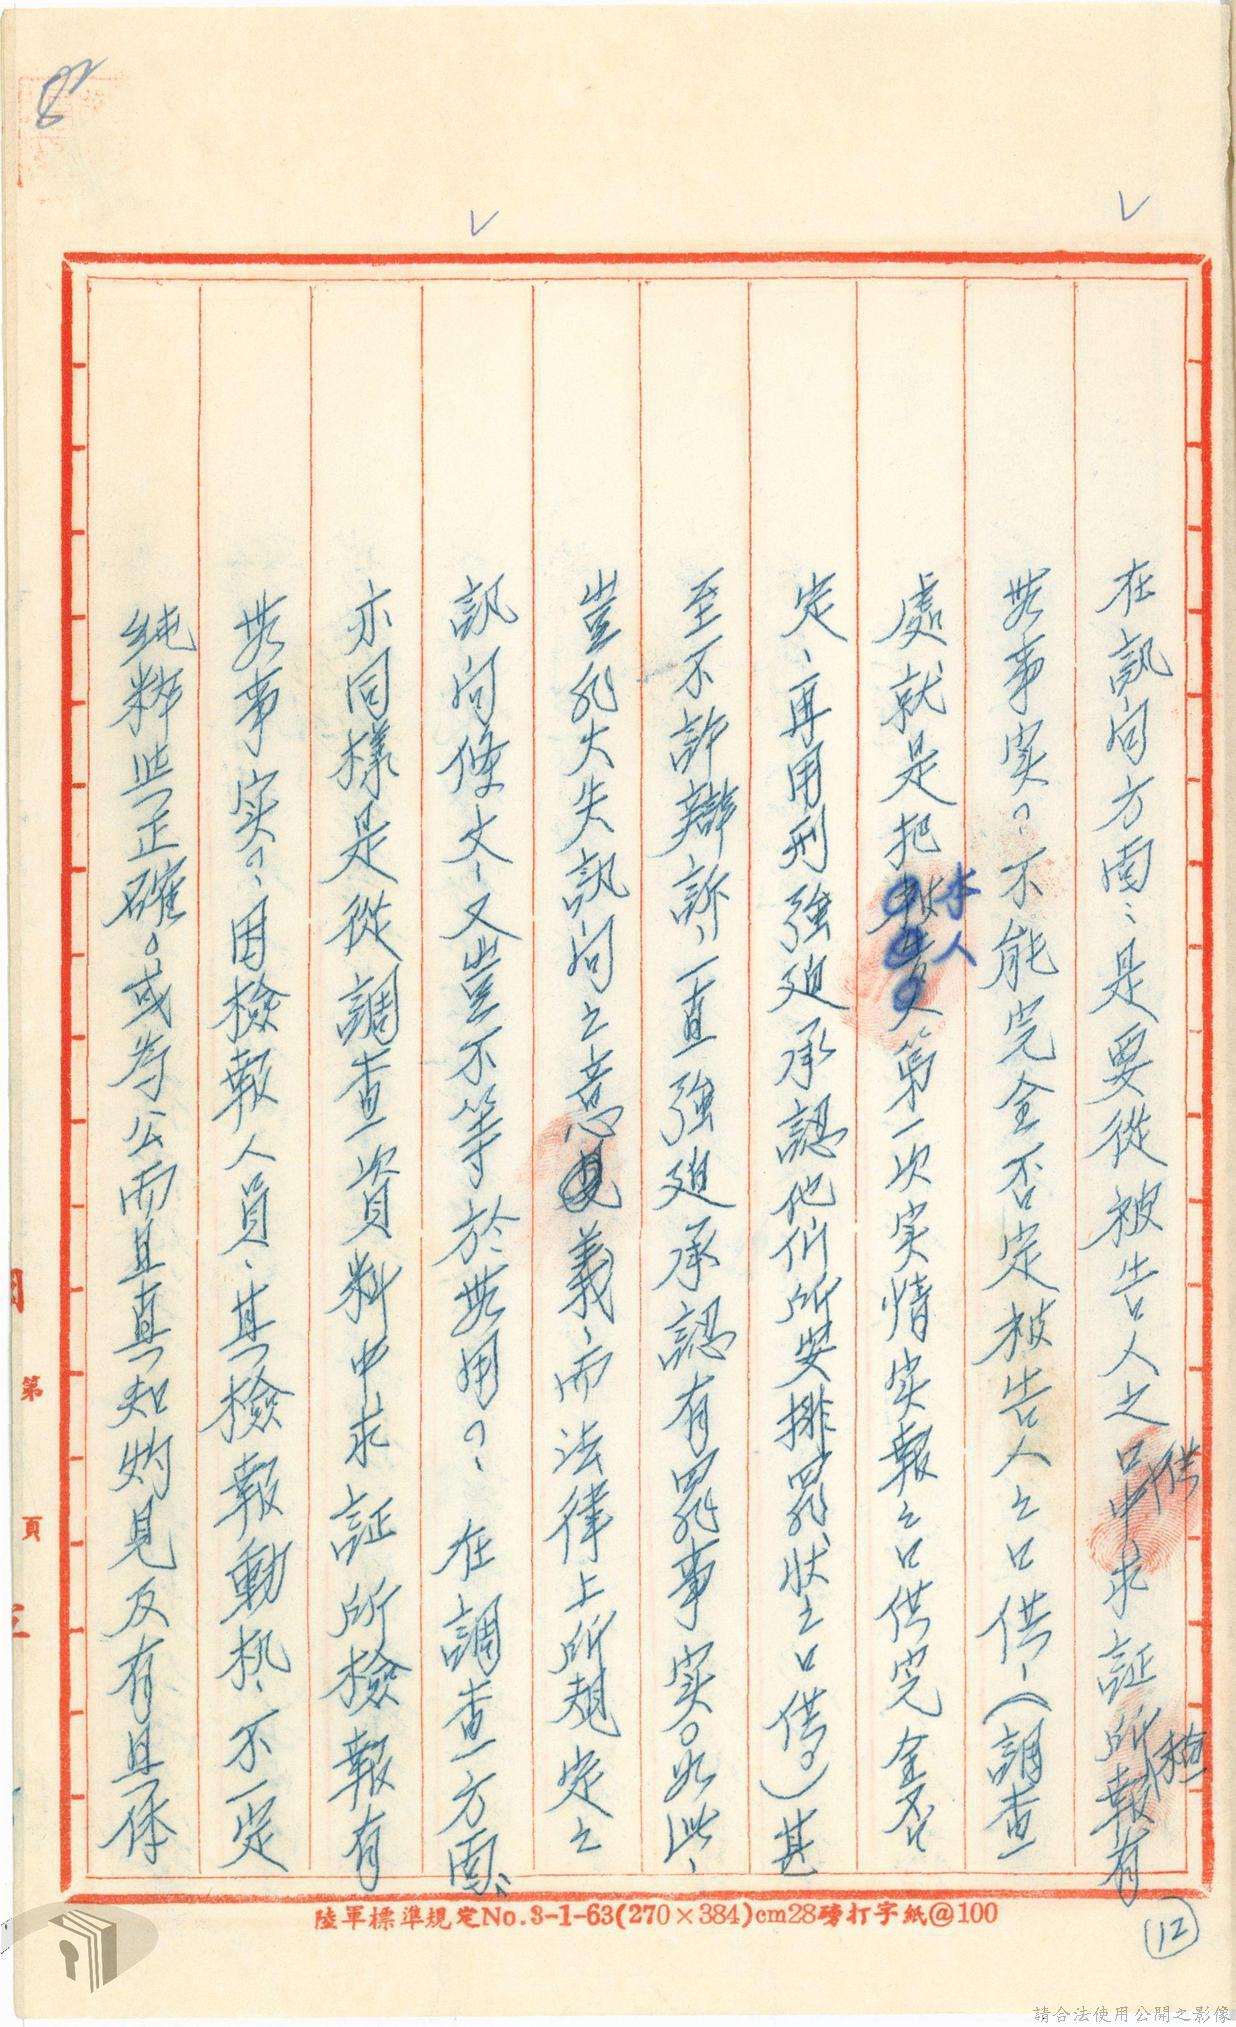 82
在訊问方面：是要從被告人之口供中求証所檢報有
無事実？不能完全否定被告人之口供、（調查
處就是把本人第一次実情実報之口供完全否
定、再用刑強迫承認他们所安排罪狀之口供。）甚
至不許辯訴、一直強迫承認有罪事実。如此、
豈非大失訊问之意義、而法律上所規定之
訊问條文、又豈不等於無用？在調查方面：
亦同樣是從調查資料中求証所檢報有
無事実？因檢報人員、其檢報動机、不一定
純粹與正確。或為公而且真知灼見及有具体
第 頁
陸軍標準規定No.3-1-63(270×384)cm28磅打字紙@100
12
請合法使用公開之影像